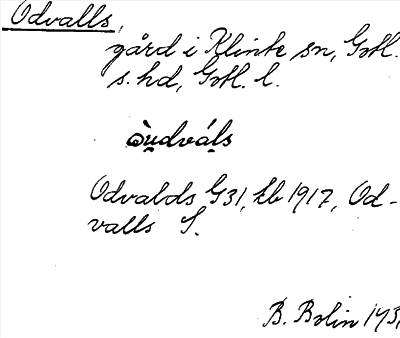 Odvalls,
gård i Klinte sn, Gotl.
s. hd, Gotl. l.
Odvalds G31, Lb 1917, Od-
valls S.
B. Bolin 1931